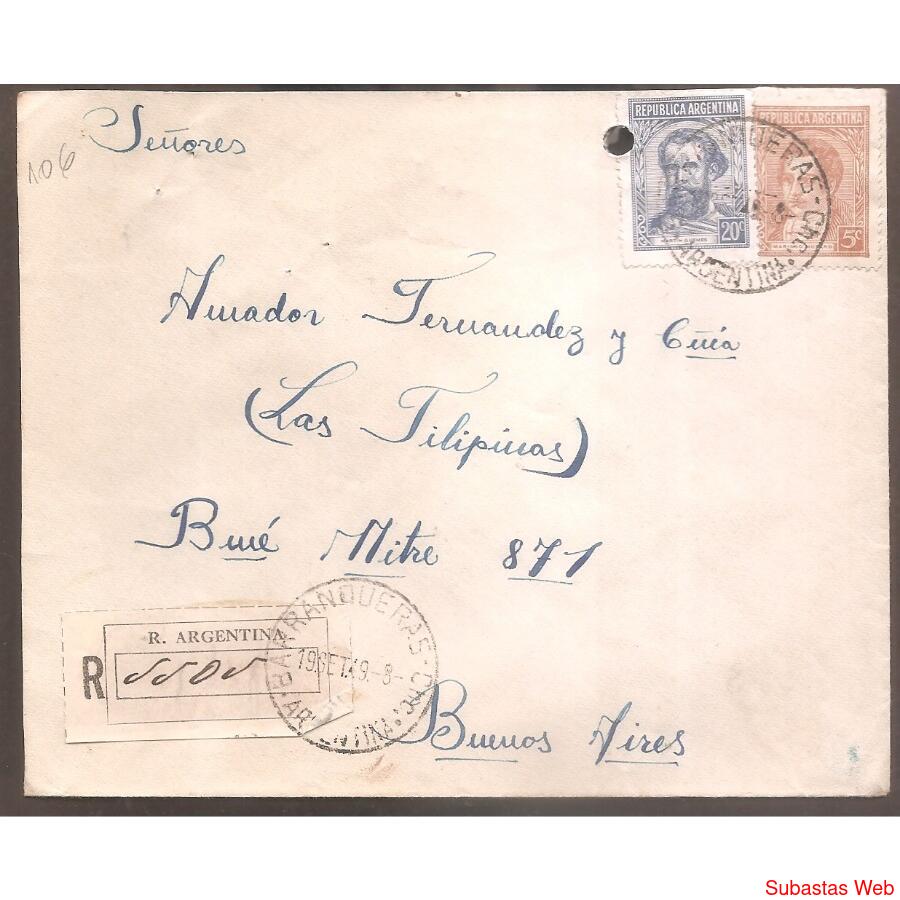 Señores
106
REPUBLICA ARGENTINA
20c
MARTIN GÜEMES
REPUBLICA ARGENTINA
5c
BARRANQUERAS - Chc.
ARGENTINA
Amador Fernandez y Cñia
(Las Filipinas)
Bmé Mitre 871
R. ARGENTINA
R
5505
BARRANQUERAS - Chc.
19.SET.49.-8-
ARGENTINA
Buenos Aires
Subastas Web